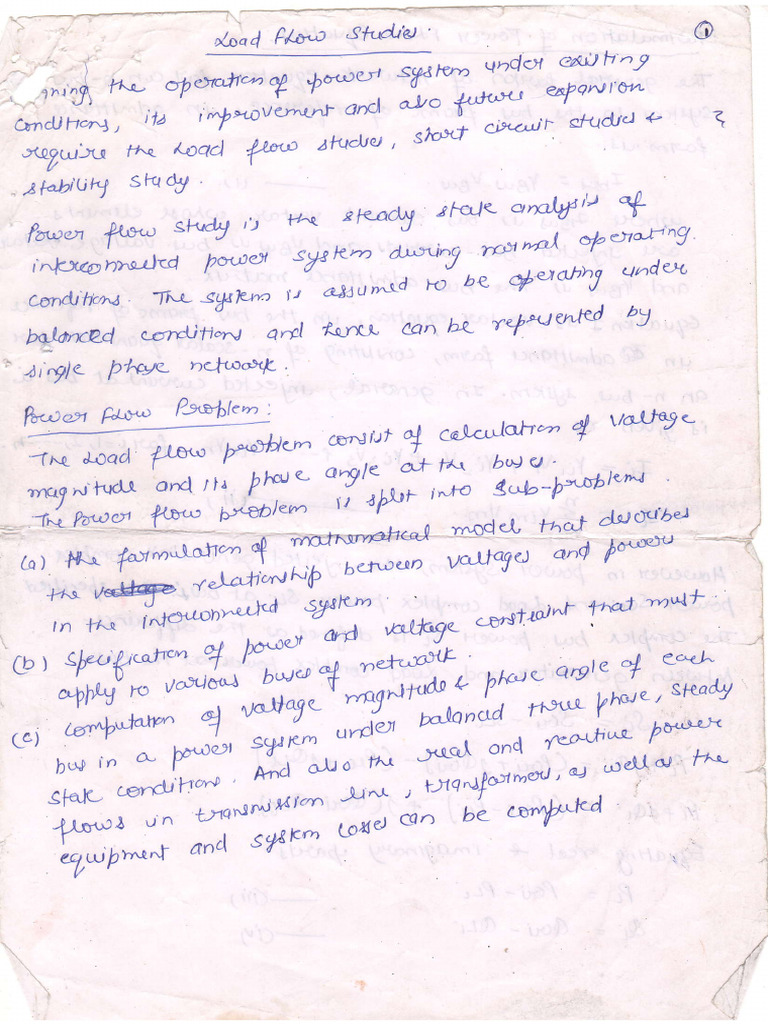 Load Flow Studies. 1
gning the operation of power system under existing
conditions, its improvement and also future expansion
require the Load flow studies, short circuit studies &
stability study.
Power flow study is the steady state analysis of
interconnected power system during normal operating.
conditions. The system is assumed to be operating under
balanced conditions and hence can be represented by
single phase network.
Power Flow Problem:
The Load flow problem consist of calculation of Valtage
magnitude and its phase angle at the buses.
The Power flow problem is split into Sub-problems.
(a) the formulation of mathematical model that describes
the relationship between valtages and power
in the interconnected system.
(b) Specification of power and valtage constraint that must
apply to various buses of network.
(c) Computation of valtage magnitude & phase angle of each
bus in a power system under balanced three phase, steady
state conditions. And also the real and reactive power
flows in transmission line, transformer, as well as the
equipment and system losses can be computed